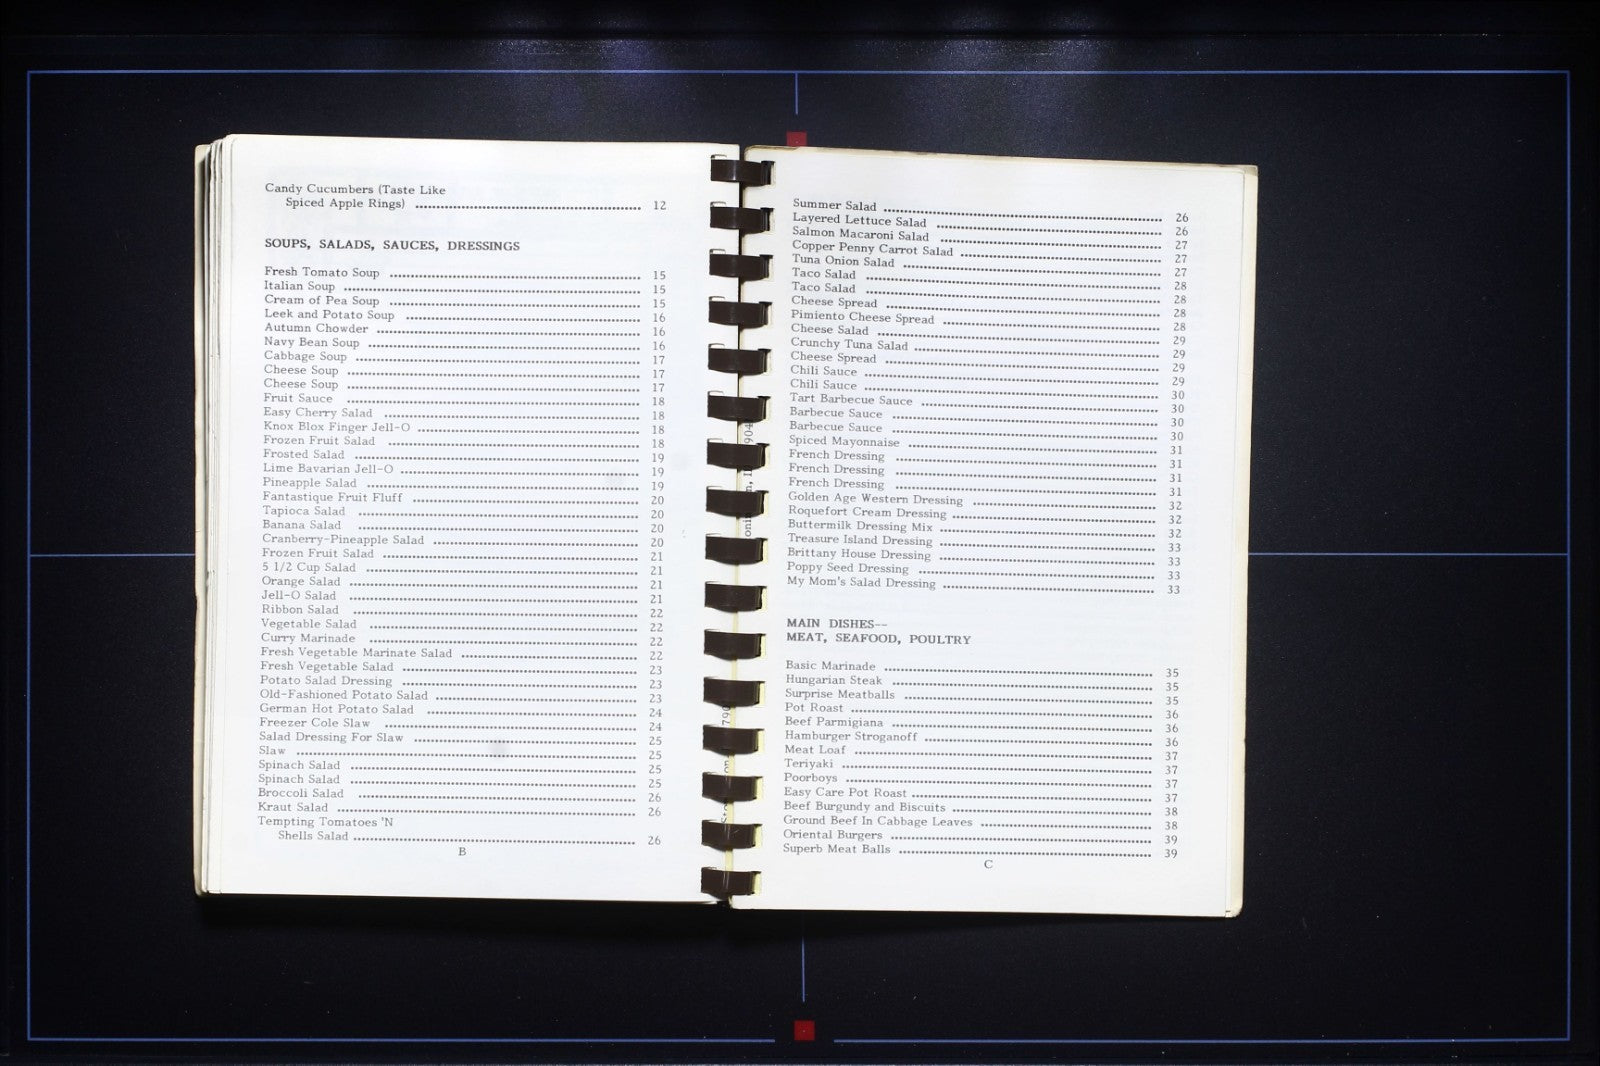 Candy Cucumbers (Taste Like
Spiced Apple Rings) 12
SOUPS, SALADS, SAUCES, DRESSINGS
Fresh Tomato Soup 15
Italian Soup 15
Cream of Pea Soup 15
Leek and Potato Soup 16
Autumn Chowder 16
Navy Bean Soup 16
Cabbage Soup 17
Cheese Soup 17
Cheese Soup 17
Fruit Sauce 18
Easy Cherry Salad 18
Knox Blox Finger Jell-O 18
Frozen Fruit Salad 18
Frosted Salad 19
Lime Bavarian Jell-O 19
Pineapple Salad 19
Fantastique Fruit Fluff 20
Tapioca Salad 20
Banana Salad 20
Cranberry-Pineapple Salad 20
Frozen Fruit Salad 21
5 1/2 Cup Salad 21
Orange Salad 21
Jell-O Salad 21
Ribbon Salad 22
Vegetable Salad 22
Curry Marinade 22
Fresh Vegetable Marinate Salad 22
Fresh Vegetable Salad 23
Potato Salad Dressing 23
Old-Fashioned Potato Salad 23
German Hot Potato Salad 24
Freezer Cole Slaw 24
Salad Dressing For Slaw 25
Slaw 25
Spinach Salad 25
Spinach Salad 25
Broccoli Salad 26
Kraut Salad 26
Tempting Tomatoes 'N
Shells Salad 26
B
Summer Salad 26
Layered Lettuce Salad 26
Salmon Macaroni Salad 27
Copper Penny Carrot Salad 27
Tuna Onion Salad 27
Taco Salad 28
Taco Salad 28
Cheese Spread 28
Pimiento Cheese Spread 28
Cheese Salad 29
Crunchy Tuna Salad 29
Cheese Spread 29
Chili Sauce 29
Chili Sauce 30
Tart Barbecue Sauce 30
Barbecue Sauce 30
Barbecue Sauce 30
Spiced Mayonnaise 31
French Dressing 31
French Dressing 31
French Dressing 31
Golden Age Western Dressing 32
Roquefort Cream Dressing 32
Buttermilk Dressing Mix 32
Treasure Island Dressing 33
Brittany House Dressing 33
Poppy Seed Dressing 33
My Mom's Salad Dressing 33
MAIN DISHES--
MEAT, SEAFOOD, POULTRY
Basic Marinade 35
Hungarian Steak 35
Surprise Meatballs 35
Pot Roast 36
Beef Parmigiana 36
Hamburger Stroganoff 36
Meat Loaf 37
Teriyaki 37
Poorboys 37
Easy Care Pot Roast 37
Beef Burgundy and Biscuits 38
Ground Beef In Cabbage Leaves 38
Oriental Burgers 39
Superb Meat Balls 39
C